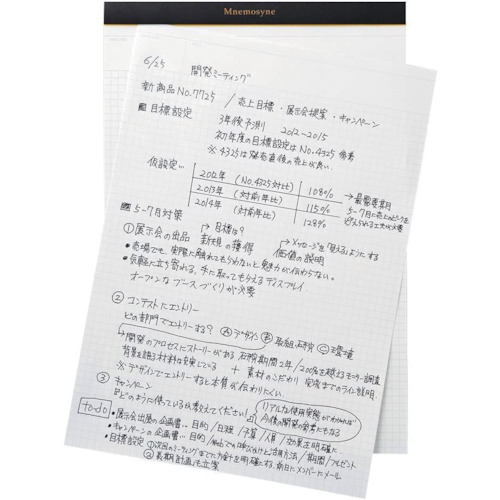 Mnemosyne
6/25 開発ミーティング
新商品No.7725 / 売上目標・展示会提案・キャンペーン
目標設定
3年後予測 2012~2015
初年度の目標設定はNo.4325参考
※4325は発売直後の売上が良い。
仮設定…
2012年 (No.4325対比) 108%
2013年 (対前年比) 115%
2014年 (対前年比) 128%
→最需要期
5-7月に売上のピークを
5-7月対策
→目標は?
①展示会の出品 新規の獲得
メッセージを「見える」ようにする
価値の説明
・売場でも、実際に触れてもらわないと魅力が伝わらない。
・気軽に立ち寄れる、手に取ってもらえるディスプレイ
オープンなブースづくりが必要
②コンテストにエントリー
どの部門でエントリーする? Ⓐデザイン Ⓑ Ⓒ環境
開発のプロセスにストーリーがある 2年/200%を超えるモニター調査
背景を語る材料は充実している + 素材のこだわり 完成までのライン説明。
※デザインでエントリーすると本質が伝わりにくい。
③キャンペーン
"どのように使っているか教えてください!"
リアルな使用実態がわかれば
今後の開発の参考にもなる
to-do
・展示会出展の企画書… 目的/日程/予算/人員/効果を明確に
・キャンペーンの企画書… 目的/Webでの 活用方法/期間/プレゼント
・目標設定 ①次回のミーティングまでに方針を明確にする。前日にメンバーにメール
②長期計画も立案